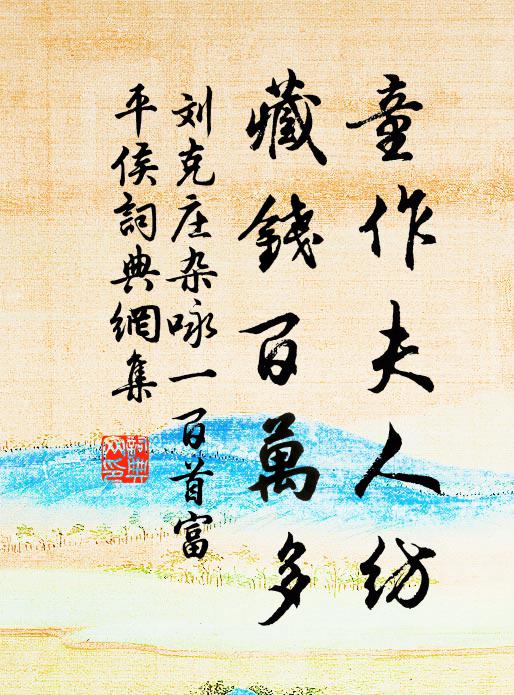 童作夫人紡
藏錢百萬多
刘克庄杂咏一百首富
平侯詞典網集